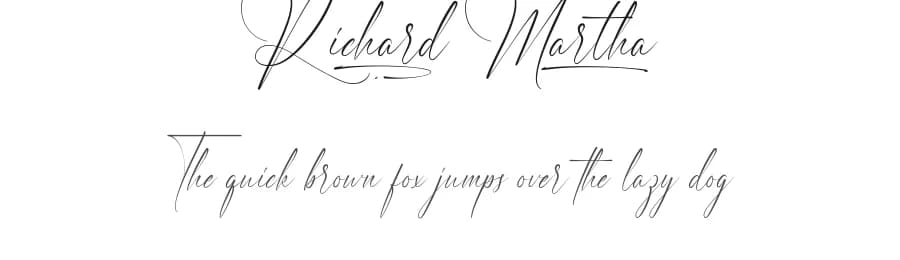 Richard Martha
The quick brown fox jumps over the lazy dog